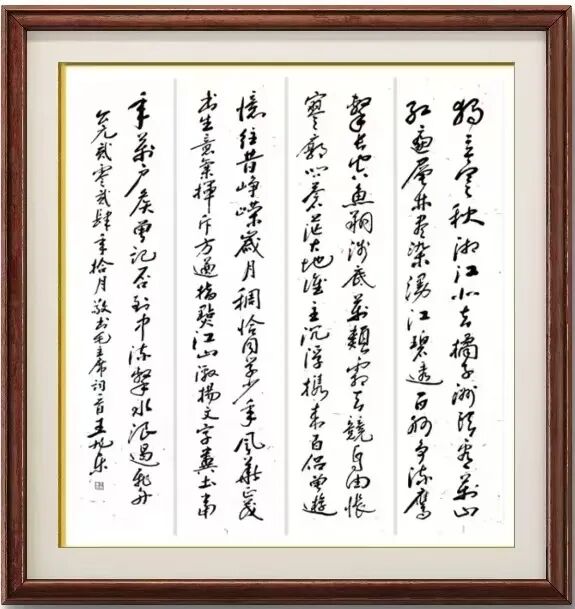 独立寒秋湘江北去橘子洲头看萬山
红遍层林尽染漫江碧透百舸争流鹰
擊长空鱼翔浅底萬類霜天競自由怅
寥廓问苍茫大地谁主沉浮携来百侣曾遊
憶往昔峥嵘岁月稠恰同学少年风华正茂
书生意氣揮斥方遒指點江山激揚文字粪土当
年萬户侯曾记否到中流擊水浪遏飞舟
公元贰零贰肆年拾月敬书毛主席词一首王